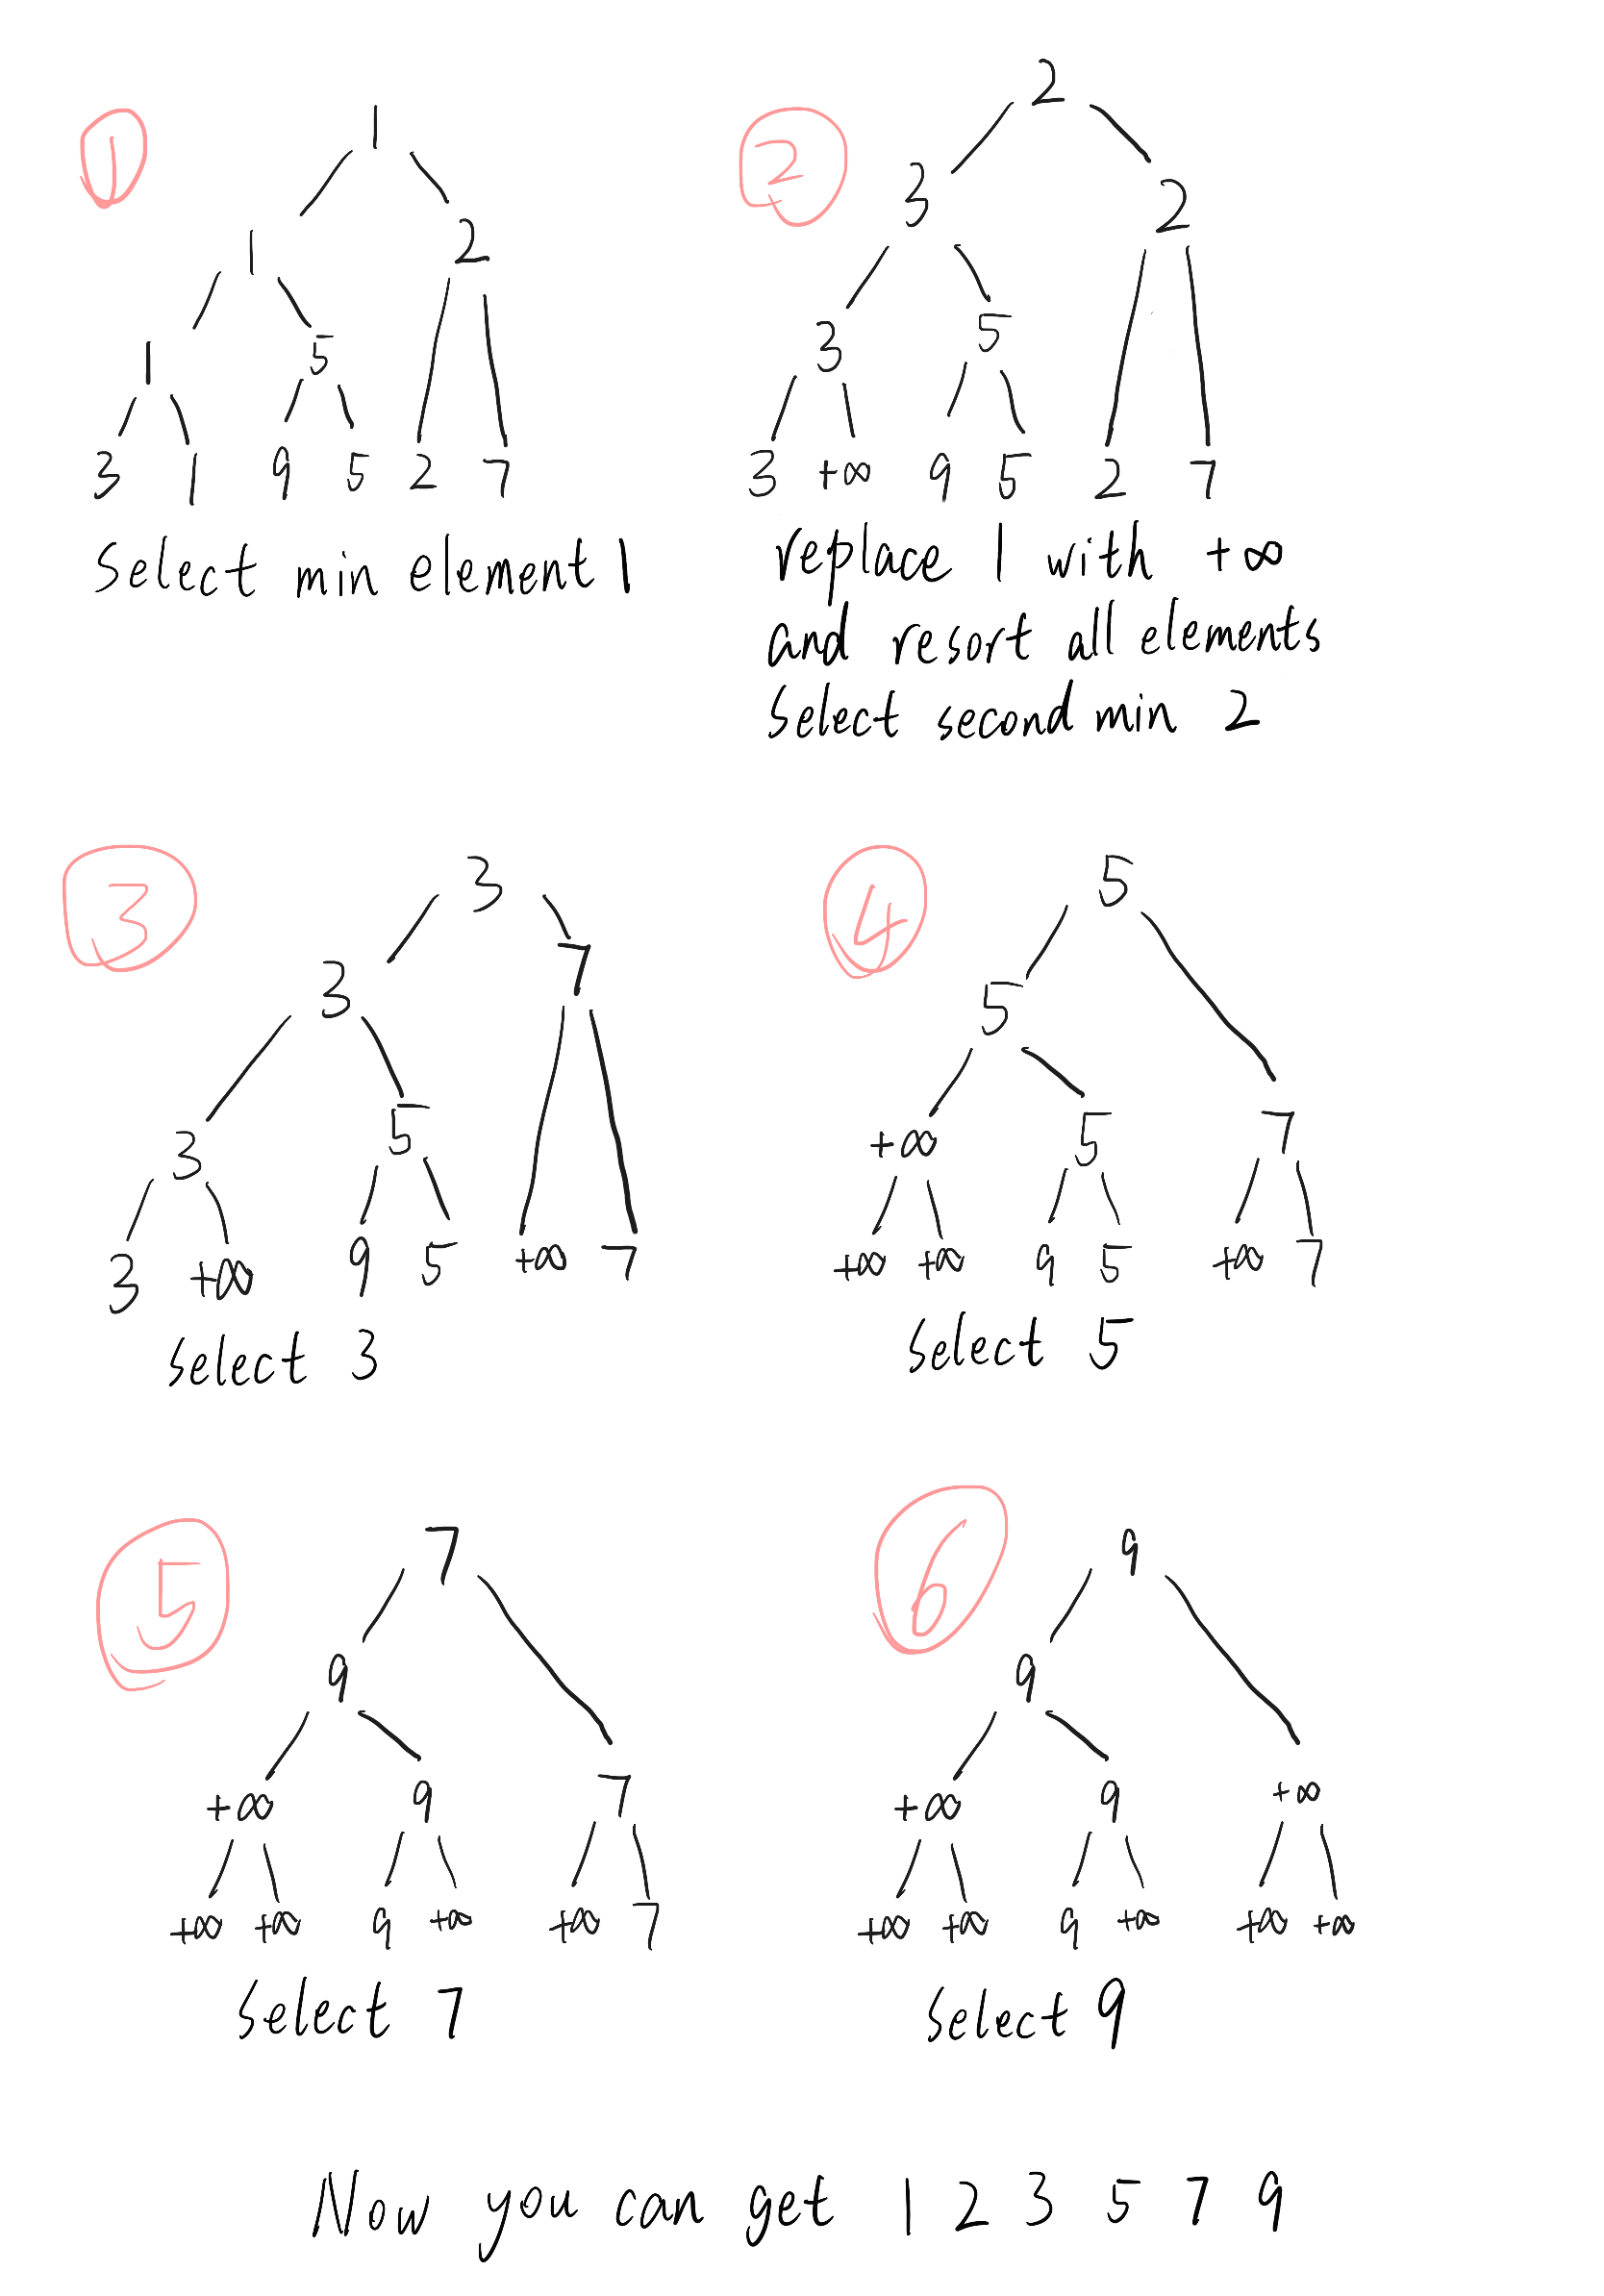 ①
1
1 2
1 5
3 1 9 5 2 7
Select min element 1
②
2
3 2
3 5
3 +∞ 9 5 2 7
replace 1 with +∞
and resort all elements
Select second min 2
③
3
3 7
3 5
3 +∞ 9 5 +∞ 7
Select 3
④
5
5
+∞ 5 7
+∞ +∞ 9 5 +∞ 7
Select 5
⑤
7
9
+∞ 9 7
+∞ +∞ 9 +∞ +∞ 7
Select 7
⑥
9
9
+∞ 9 +∞
+∞ +∞ 9 +∞ +∞ +∞
Select 9
Now you can get 1 2 3 5 7 9